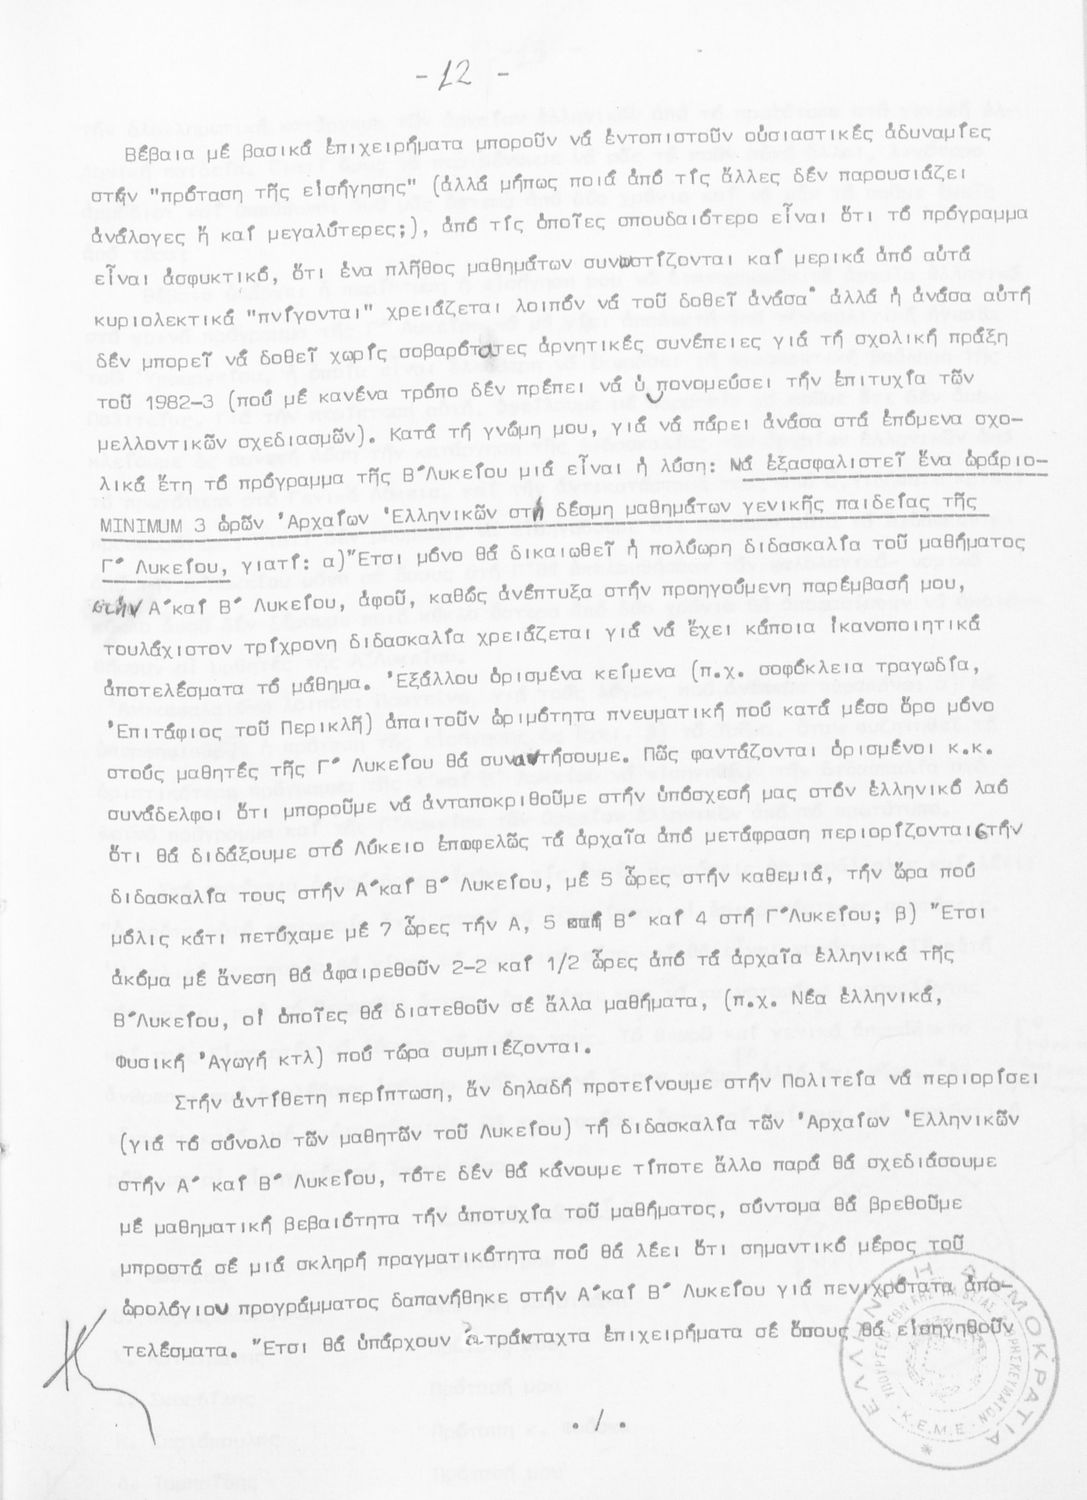 - 12 -
Βέβαια μέ βασικά ἐπιχειρήματα μποροῦν νά ἐντοπιστοῦν οὐσιαστικές ἀδυναμίες
στήν "πρόταση τῆς εἰσήγησης" (ἀλλά μήπως ποιά ἀπό τίς ἄλλες δέν παρουσιάζει
ἀνάλογες ἤ καί μεγαλύτερες;), ἀπό τίς ὁποῖες σπουδαιότερο εἶναι ὅτι τό πρόγραμμα
εἶναι ἀσφυκτικό, ὅτι ἕνα πλῆθος μαθημάτων συνωστίζονται καί μερικά ἀπό αὐτά
κυριολεκτικά "πνίγονται" χρειάζεται λοιπόν νά τοῦ δοθεῖ ἀνάσα· ἀλλά ἡ ἀνάσα αὐτή
δέν μπορεῖ νά δοθεῖ χωρίς σοβαρότατες ἀρνητικές συνέπειες γιά τή σχολική πράξη
τοῦ 1982-3 (πού μέ κανένα τρόπο δέν πρέπει νά ὑπονομεύσει τήν ἐπιτυχία τῶν
μελλοντικῶν σχεδιασμῶν). Κατά τή γνώμη μου, γιά νά πάρει ἀνάσα στά ἑπόμενα σχο-
λικά ἔτη τό πρόγραμμα τῆς Β΄Λυκείου μιά εἶναι ἡ λύση: Νά ἐξασφαλιστεῖ ἕνα ὡράριο-
MINIMUM 3 ὡρῶν Ἀρχαίων Ἑλληνικῶν στή δέσμη μαθημάτων γενικῆς παιδείας τῆς
Γ΄ Λυκείου, γιατί: α)Ἔτσι μόνο θά δικαιωθεῖ ἡ πολύωρη διδασκαλία τοῦ μαθήματος
στήν Α΄καί Β΄ Λυκείου, ἀφοῦ, καθώς ἀνέπτυξα στήν προηγούμενη παρέμβασή μου,
τουλάχιστον τρίχρονη διδασκαλία χρειάζεται γιά νά ἔχει κάποια ἱκανοποιητικά
ἀποτελέσματα τό μάθημα. Ἐξάλλου ὁρισμένα κείμενα (π.χ. σοφόκλεια τραγωδία,
Ἐπιτάφιος τοῦ Περικλῆ) ἀπαιτοῦν ὡριμότητα πνευματική πού κατά μέσο ὅρο μόνο
στούς μαθητές τῆς Γ΄ Λυκείου θά συναντήσουμε. Πῶς φαντάζονται ὁρισμένοι κ.κ.
συνάδελφοι ὅτι μποροῦμε νά ἀνταποκριθοῦμε στήν ὑπόσχεσή μας στόν ἑλληνικό λαό
ὅτι θά διδάξουμε στό Λύκειο ἐπωφελῶς τά ἀρχαῖα ἀπό μετάφραση περιορίζονται στήν
διδασκαλία τους στήν Α΄καί Β΄ Λυκείου, μέ 5 ὧρες στήν καθεμιά, τήν ὥρα πού
μόλις κάτι πετύχαμε μέ 7 ὧρες τήν Α, 5 στή Β΄ καί 4 στή Γ΄Λυκείου; β) Ἔτσι
ἀκόμα μέ ἄνεση θά ἀφαιρεθοῦν 2-2 καί 1/2 ὧρες ἀπό τά ἀρχαῖα ἑλληνικά τῆς
Β΄Λυκείου, οἱ ὁποῖες θά διατεθοῦν σέ ἄλλα μαθήματα, (π.χ. Νέα ἑλληνικά,
Φυσική Ἀγωγή κτλ) πού τώρα συμπιέζονται.
Στήν ἀντίθετη περίπτωση, ἄν δηλαδή προτείνουμε στήν Πολιτεία νά περιορίσει
(γιά τό σύνολο τῶν μαθητῶν τοῦ Λυκείου) τή διδασκαλία τῶν Ἀρχαίων Ἑλληνικῶν
στήν Α΄ καί Β΄ Λυκείου, τότε δέν θά κάνουμε τίποτε ἄλλο παρά θά σχεδιάσουμε
μέ μαθηματική βεβαιότητα τήν ἀποτυχία τοῦ μαθήματος, σύντομα θά βρεθοῦμε
μπροστά σέ μιά σκληρή πραγματικότητα πού θά λέει ὅτι σημαντικό μέρος τοῦ
ὡρολόγιου προγράμματος δαπανήθηκε στήν Α΄καί Β΄ Λυκείου γιά πενιχρότατα ἀπο-
τελέσματα. Ἔτσι θά ὑπάρχουν ἀτράνταχτα ἐπιχειρήματα σέ ὅπους θά εἰσηγηθοῦν
./.
ΕΛΛΗΝΙΚΗ ΔΗΜΟΚΡΑΤΙΑ
Κ.Ε.Μ.Ε.